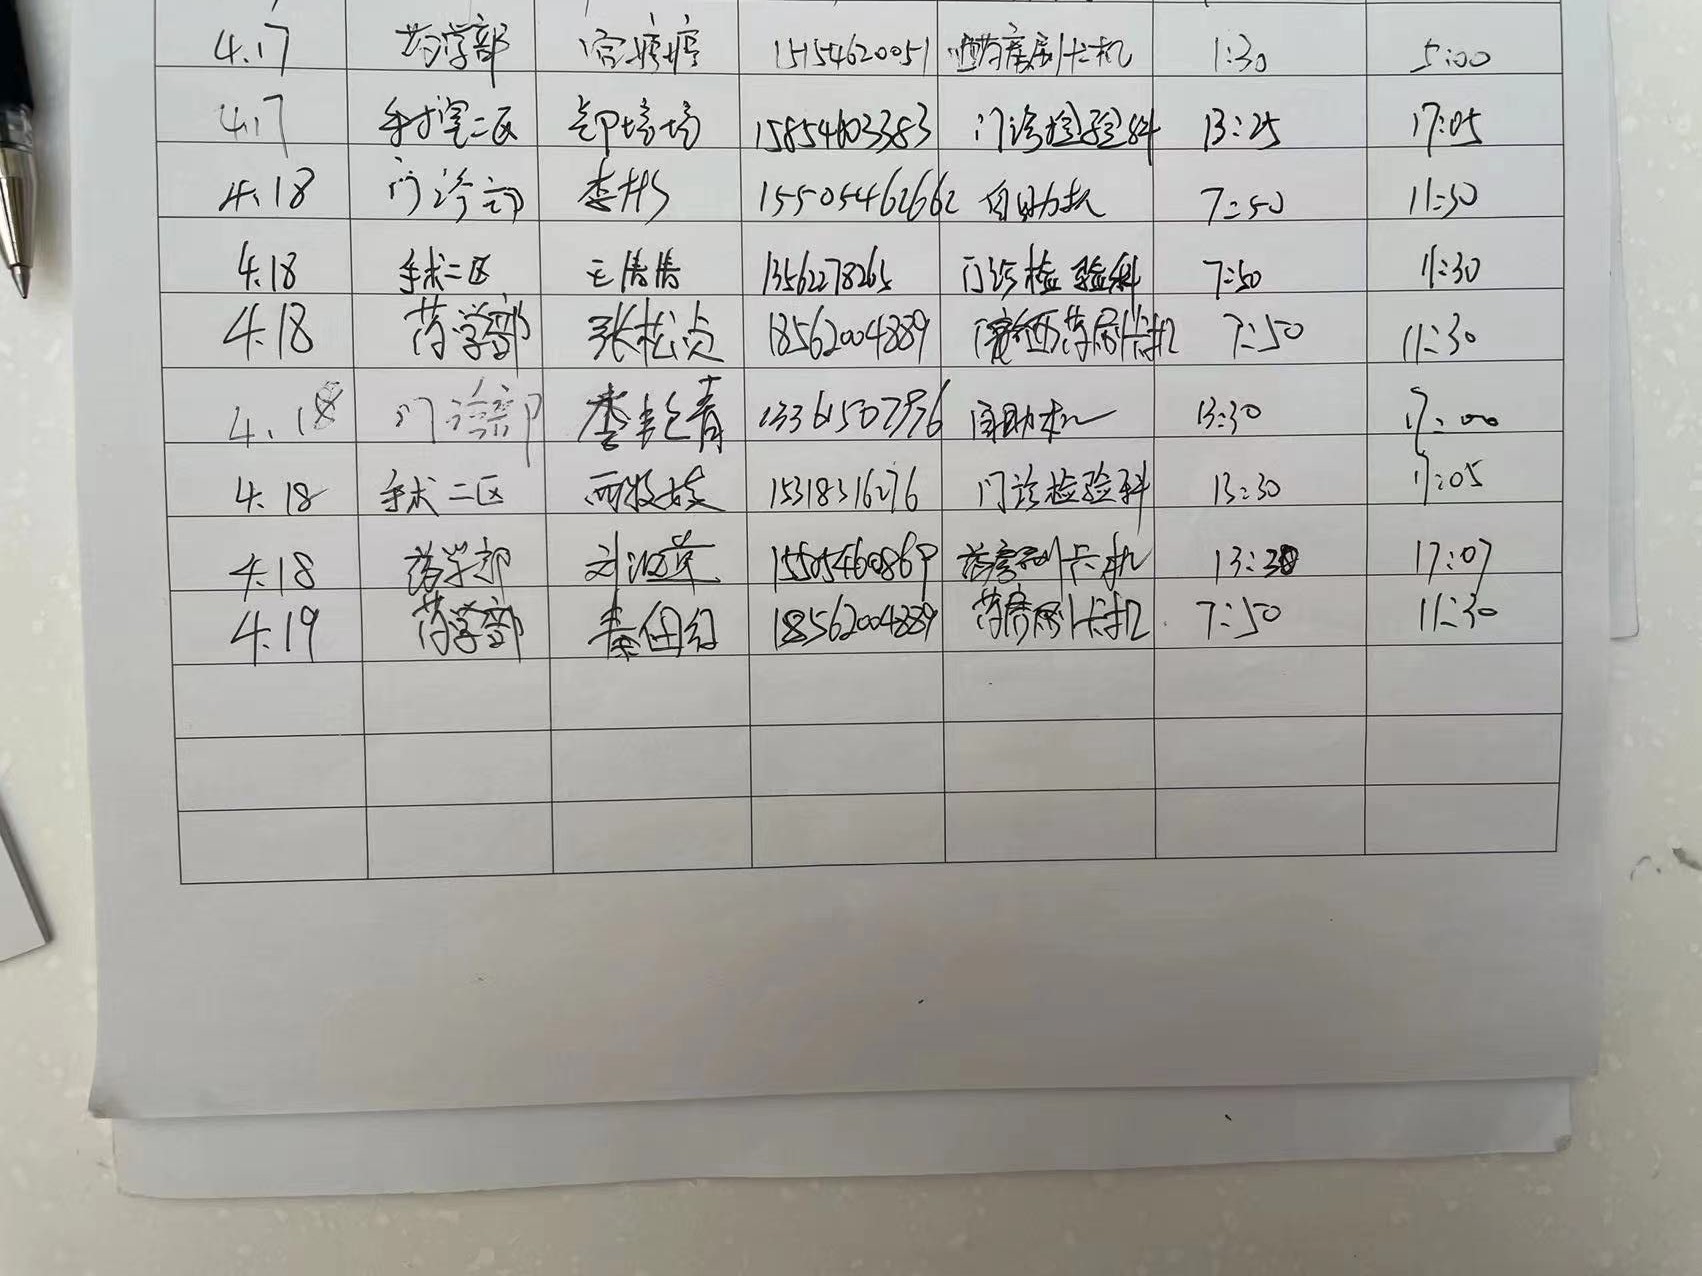 4.17 药学部 宫婷婷 15154620051 西药房刷卡机 1:30 5:00
4.17 手术室二区 培培 15854603383 门诊检验科 13:25 17:05
4.18 门诊部 李彬 15505462662 自助机 7:50 11:30
4.18 手术二区 王倩倩 13562278265 门诊检验科 7:50 11:30
4.18 药学部 张松贞 18562004889 西药房刷卡机 7:50 11:30
4.18 门诊部 李艳青 自助机 13:30 17:00
4.18 手术二区 15318316276 门诊检验科 13:30 17:05
4.18 药学部 刘 15505460869 药房刷卡机 13:30 17:07
4.19 药学部 秦田红 18562004889 药房刷卡机 7:50 11:30